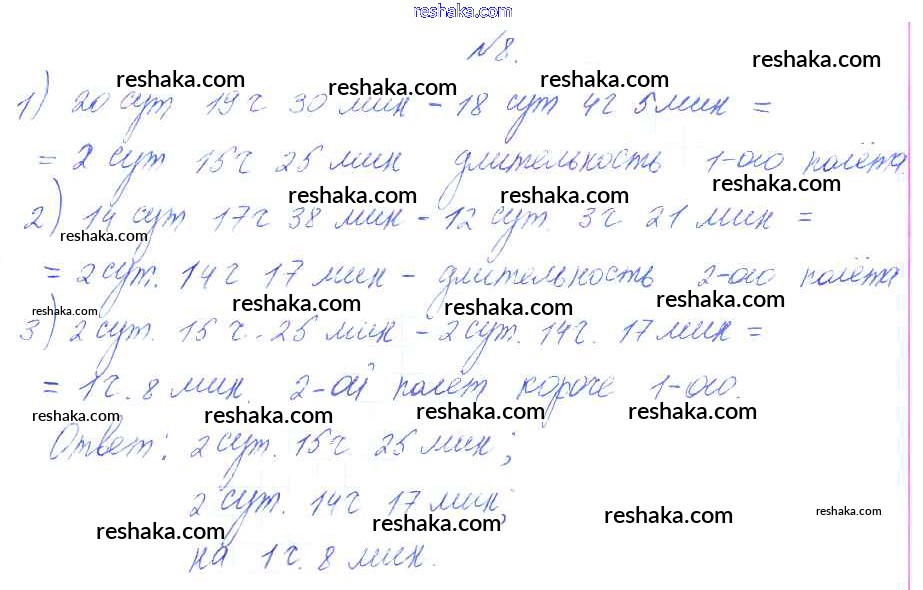 reshaka.com
№8.
reshaka.com reshaka.com reshaka.com reshaka.com
1) 20 сут 19 ч 30 мин - 18 сут 4 ч 5 мин =
reshaka.com reshaka.com reshaka.com
= 2 сут 15 ч 25 мин длительность 1-ого полёта.
reshaka.com reshaka.com reshaka.com
2) 14 сут 17 ч 38 мин - 12 сут. 3 ч 21 мин =
reshaka.com
= 2 сут. 14 ч 17 мин - длительность 2-ого полёта
reshaka.com reshaka.com reshaka.com reshaka.com
3) 2 сут. 15 ч. 25 мин - 2 сут. 14 ч. 17 мин =
= 1 ч. 8 мин. 2-ой полёт короче 1-ого.
reshaka.com reshaka.com reshaka.com reshaka.com
Ответ: 2 сут. 15 ч 25 мин;
2 сут. 14 ч 17 мин;
reshaka.com reshaka.com reshaka.com reshaka.com
на 1 ч. 8 мин.